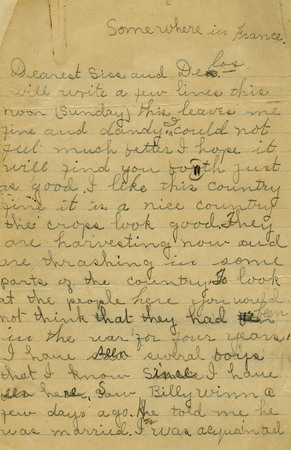 Somewhere in France.
Dearest Siss and Delos
will write a few lines this
noon (Sunday) this leaves me
fine and dandy, could not
feel much better I hope it
will find you both just
as good. I like this country
fine it is a nice country
the crops look good. They
are harvesting now and
are thrashing in some
parts of the country. To look
at the people here you would
not think that they had been
in the war for four years.
I have seen several boys
that I know since I have
been here, saw Billy Winn a
few days ago. He told me he
was married. I was acquanted